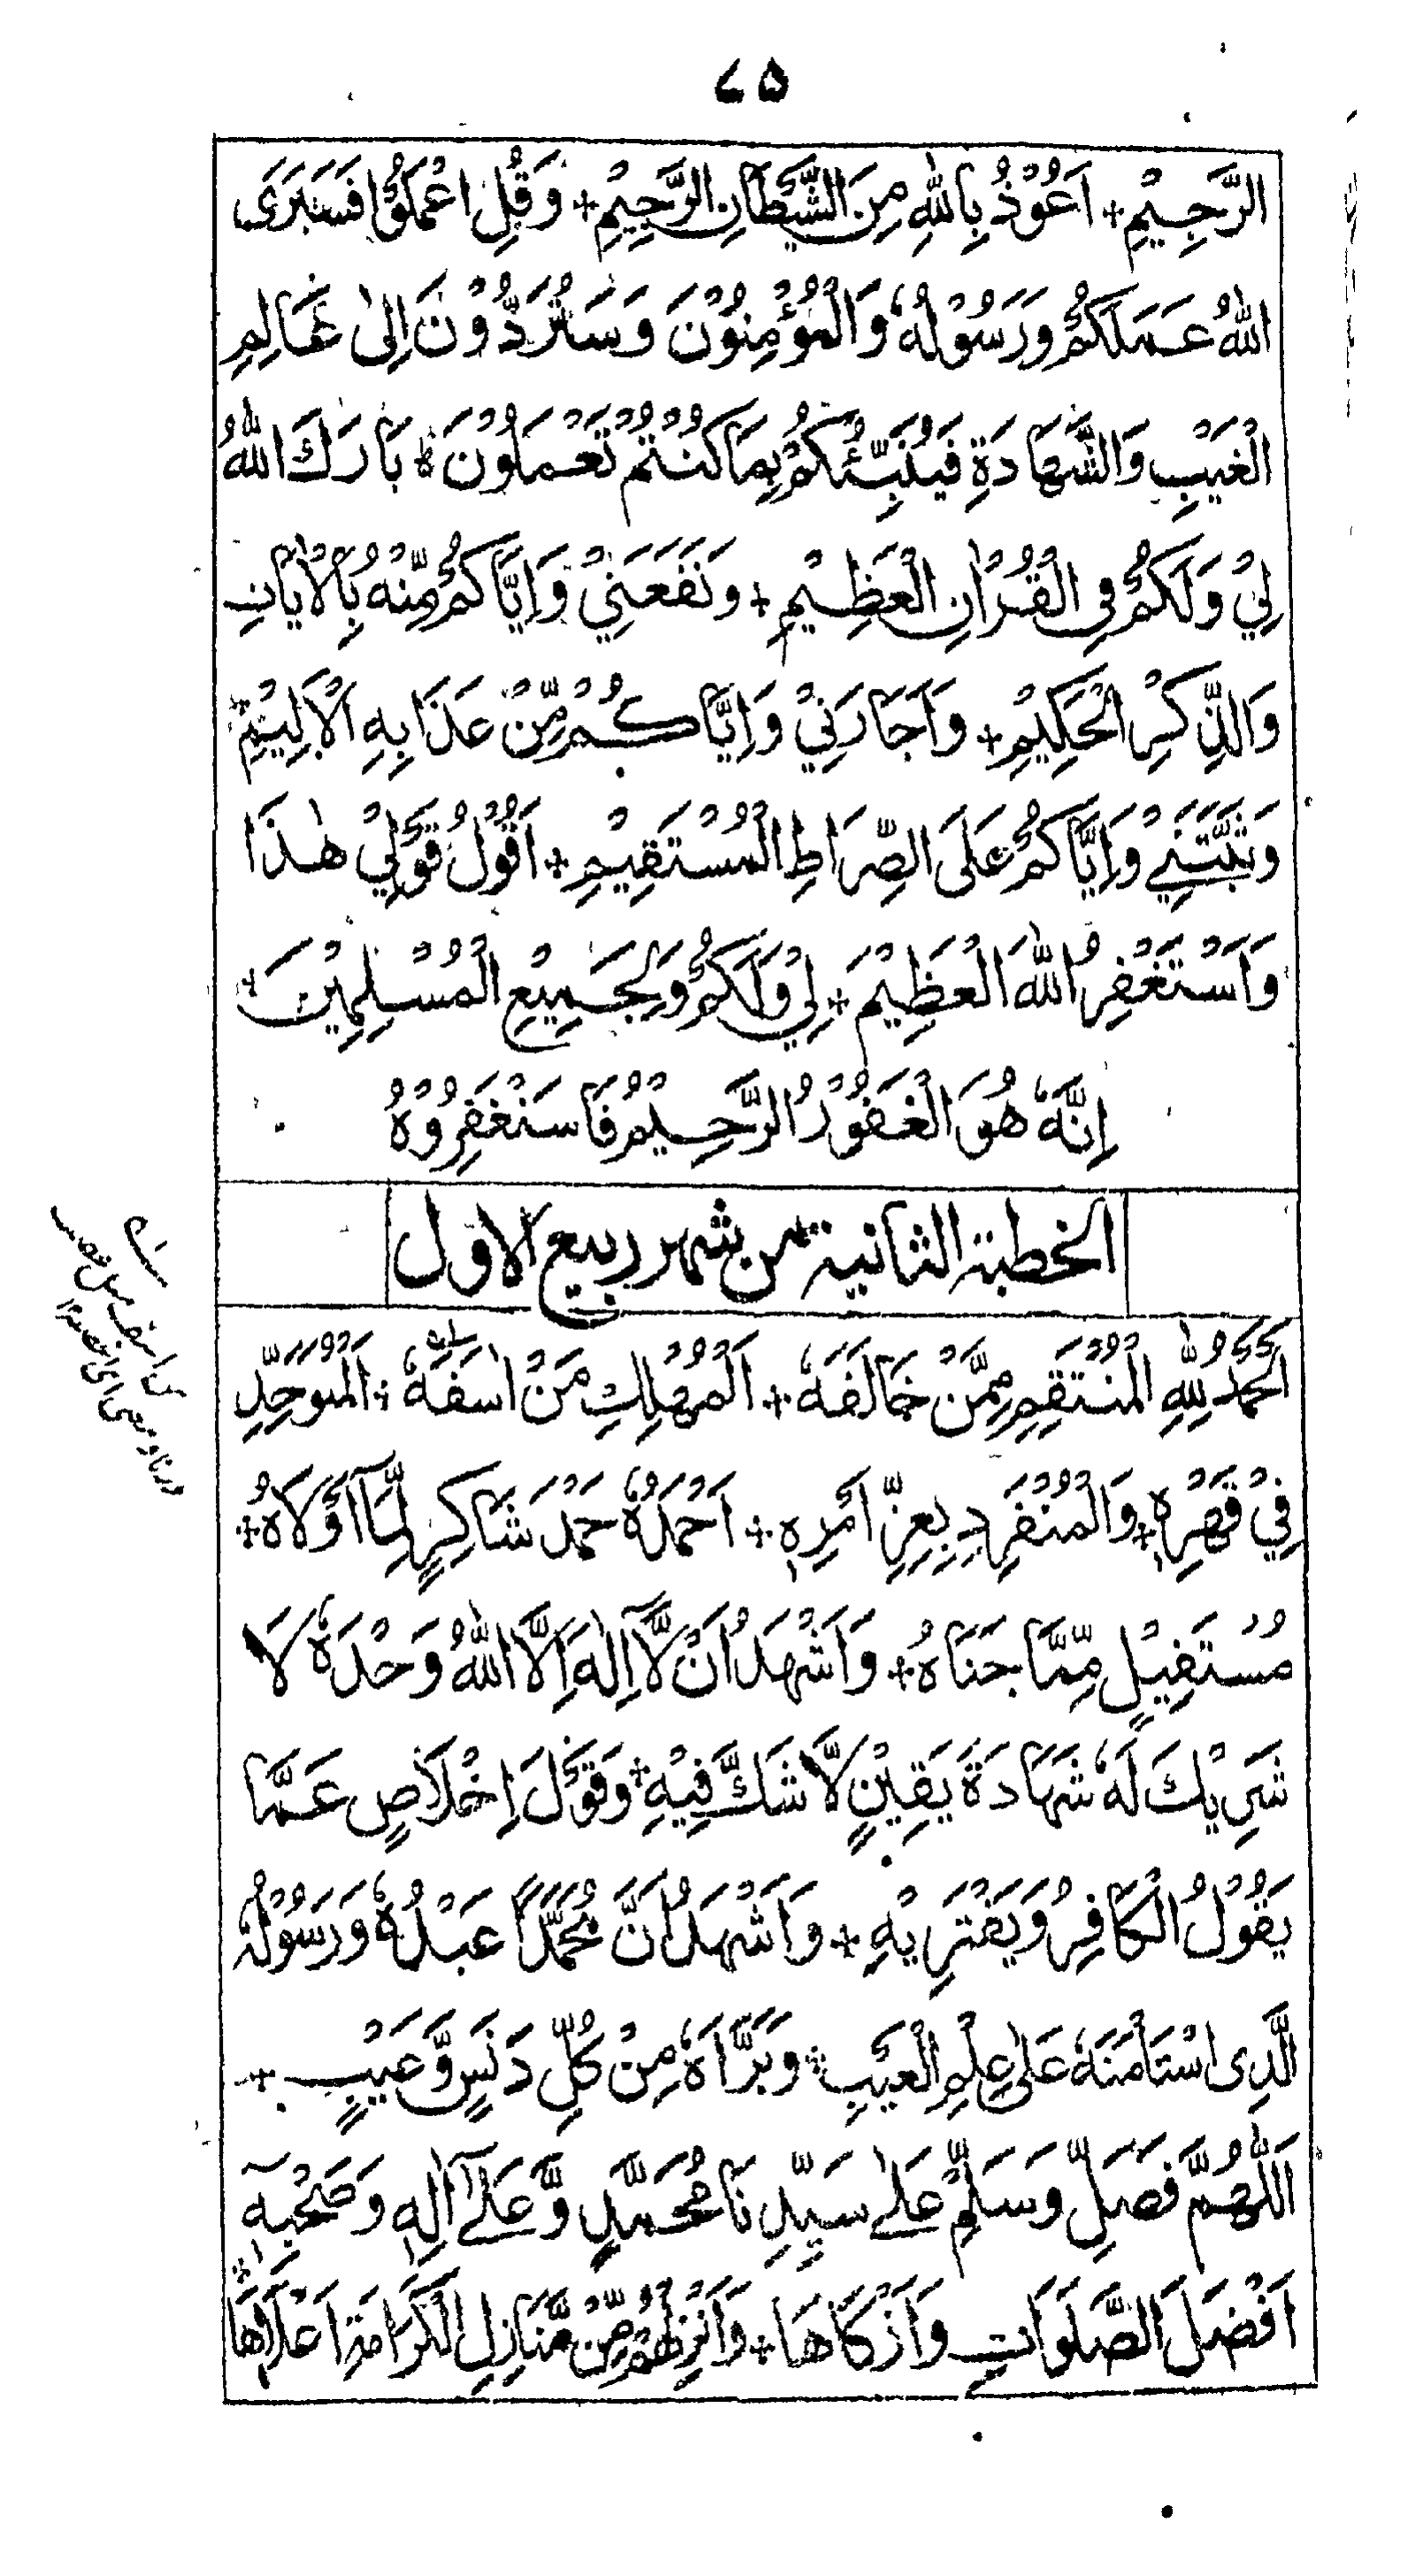 ٧٥
الرَّحِيْمِ + اَعُوْذُ بِاللهِ مِنَ الشَّيْطَانِ الرَّجِيْمِ + وَقُلِ اعْمَلُوْا فَسَيَرَى
اللهُ عَمَلَكُمْ وَرَسُوْلُهٗ وَالْمُؤْمِنُوْنَ وَسَتُرَدُّوْنَ اِلٰى عَالِمِ
الْغَيْبِ وَالشَّهَادَةِ فَيُنَبِّئُكُمْ بِمَا كُنْتُمْ تَعْمَلُوْنَ ہ بَارَكَ اللهُ
لِيْ وَلَكُمْ فِي الْقُرْاٰنِ الْعَظِيْمِ + وَنَفَعَنِيْ وَاِيَّاكُمْ مِّنْهُ بِالْاٰيَاتِ
وَالذِّكْرِ الْحَكِيْمِ + وَاَجَارَنِيْ وَاِيَّاكُمْ مِّنْ عَذَابِهِ الْاَلِيْمِ +
وَثَبَّتَنِيْ وَاِيَّاكُمْ عَلَى الصِّرَاطِ الْمُسْتَقِيْمِ + اَقُوْلُ قَوْلِيْ هٰذَا
وَاَسْتَغْفِرُ اللهَ الْعَظِيْمَ + لِيْ وَلَكُمْ وَلِجَمِيْعِ الْمُسْلِمِيْنَ +
اِنَّهٗ هُوَ الْغَفُوْرُ الرَّحِيْمُ فَاسْتَغْفِرُوْهُ
الخطبة الثانية من شهر ربيع الاول
اَلْحَمْدُ لِلّٰهِ الْمُنْتَقِمِ مِمَّنْ خَالَفَهٗ + اَلْمُهْلِكِ مَنْ اٰسَفَهٗ + اَلْمُتَوَحِّدِ
فِيْ قَهْرِهٖ + وَالْمُنْفَرِدِ بِعِزِّ اَمْرِهٖ + اَحْمَدُهٗ حَمْدَ شَاكِرٍ لِّمَا اَوْلَاهُ +
مُسْتَقِيْلٍ مِّمَّا جَنَاهُ + وَاَشْهَدُ اَنْ لَّا اِلٰهَ اِلَّا اللهُ وَحْدَهٗ لَا
شَرِيْكَ لَهٗ شَهَادَةَ يَقِيْنٍ لَّا شَكَّ فِيْهِ + وَقَوْلَ اِخْلَاصٍ عَمَّا
يَقُوْلُ الْكَافِرُ وَيَفْتَرِيْهِ + وَاَشْهَدُ اَنَّ مُحَمَّدًا عَبْدُهٗ وَرَسُوْلُهٗ
الَّذِى اسْتَاْمَنَهٗ عَلٰى عِلْمِ الْغَيْبِ + وَبَرَّاَهٗ مِنْ كُلِّ دَنَسٍ وَّعَيْبٍ +
اَللّٰهُمَّ فَصَلِّ وَسَلِّمْ عَلٰى سَيِّدِنَا مُحَمَّدٍ وَّعَلٰى اٰلِهٖ وَصَحْبِهٖ
اَفْضَلَ الصَّلَوَاتِ وَاَزْكَاهَا + وَاَنْزِلْهُمْ مِّنْ مَّنَازِلِ الْكَرَامَةِ اَعْلَاهَا +